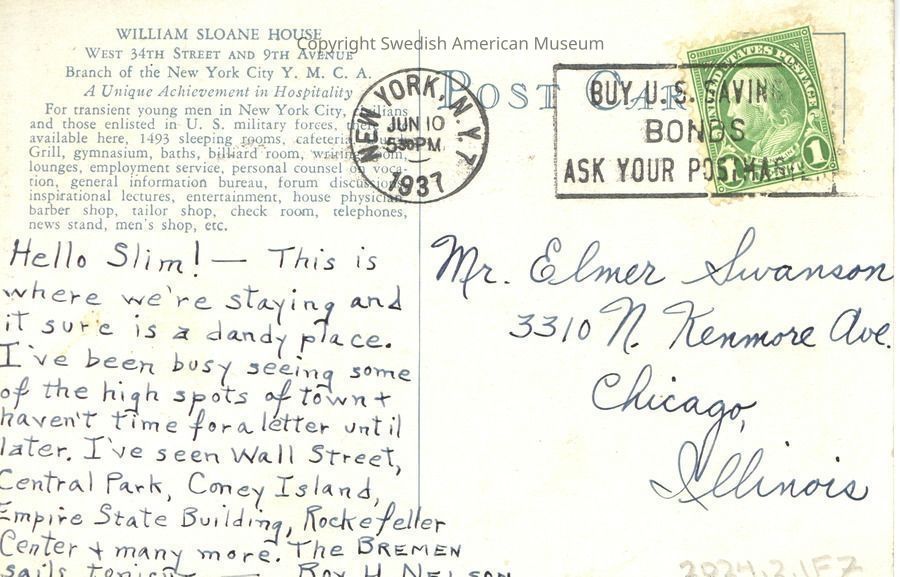 Copyright Swedish American Museum
WILLIAM SLOANE HOUSE
WEST 34TH STREET AND 9TH AVENUE
Branch of the New York City Y. M. C. A.
A Unique Achievement in Hospitality
For transient young men in New York City, civilians
and those enlisted in U. S. military forces, there
available here, 1493 sleeping rooms, cafeteria
Grill, gymnasium, baths, billiard room, writing room,
lounges, employment service, personal counsel on voca-
tion, general information bureau, forum discussion
inspirational lectures, entertainment, house physician
barber shop, tailor shop, check room, telephones,
news stand, men's shop, etc.
Hello Slim! — This is
where we're staying and
it sure is a dandy place.
I've been busy seeing some
of the high spots of town +
haven't time for a letter until
later. I've seen Wall Street,
Central Park, Coney Island,
Empire State Building, Rockefeller
Center + many more. The BREMEN
sails tonight — ROY H NELSON
POST CARD
NEW YORK, N.Y. 7
JUN 10
5 30 PM
1937
BUY U.S. SAVINGS
BONDS
ASK YOUR POSTMASTER
UNITED STATES POSTAGE
1 1
Mr. Elmer Swanson
3310 N. Kenmore Ave.
Chicago,
Illinois
2024.2.1FZ